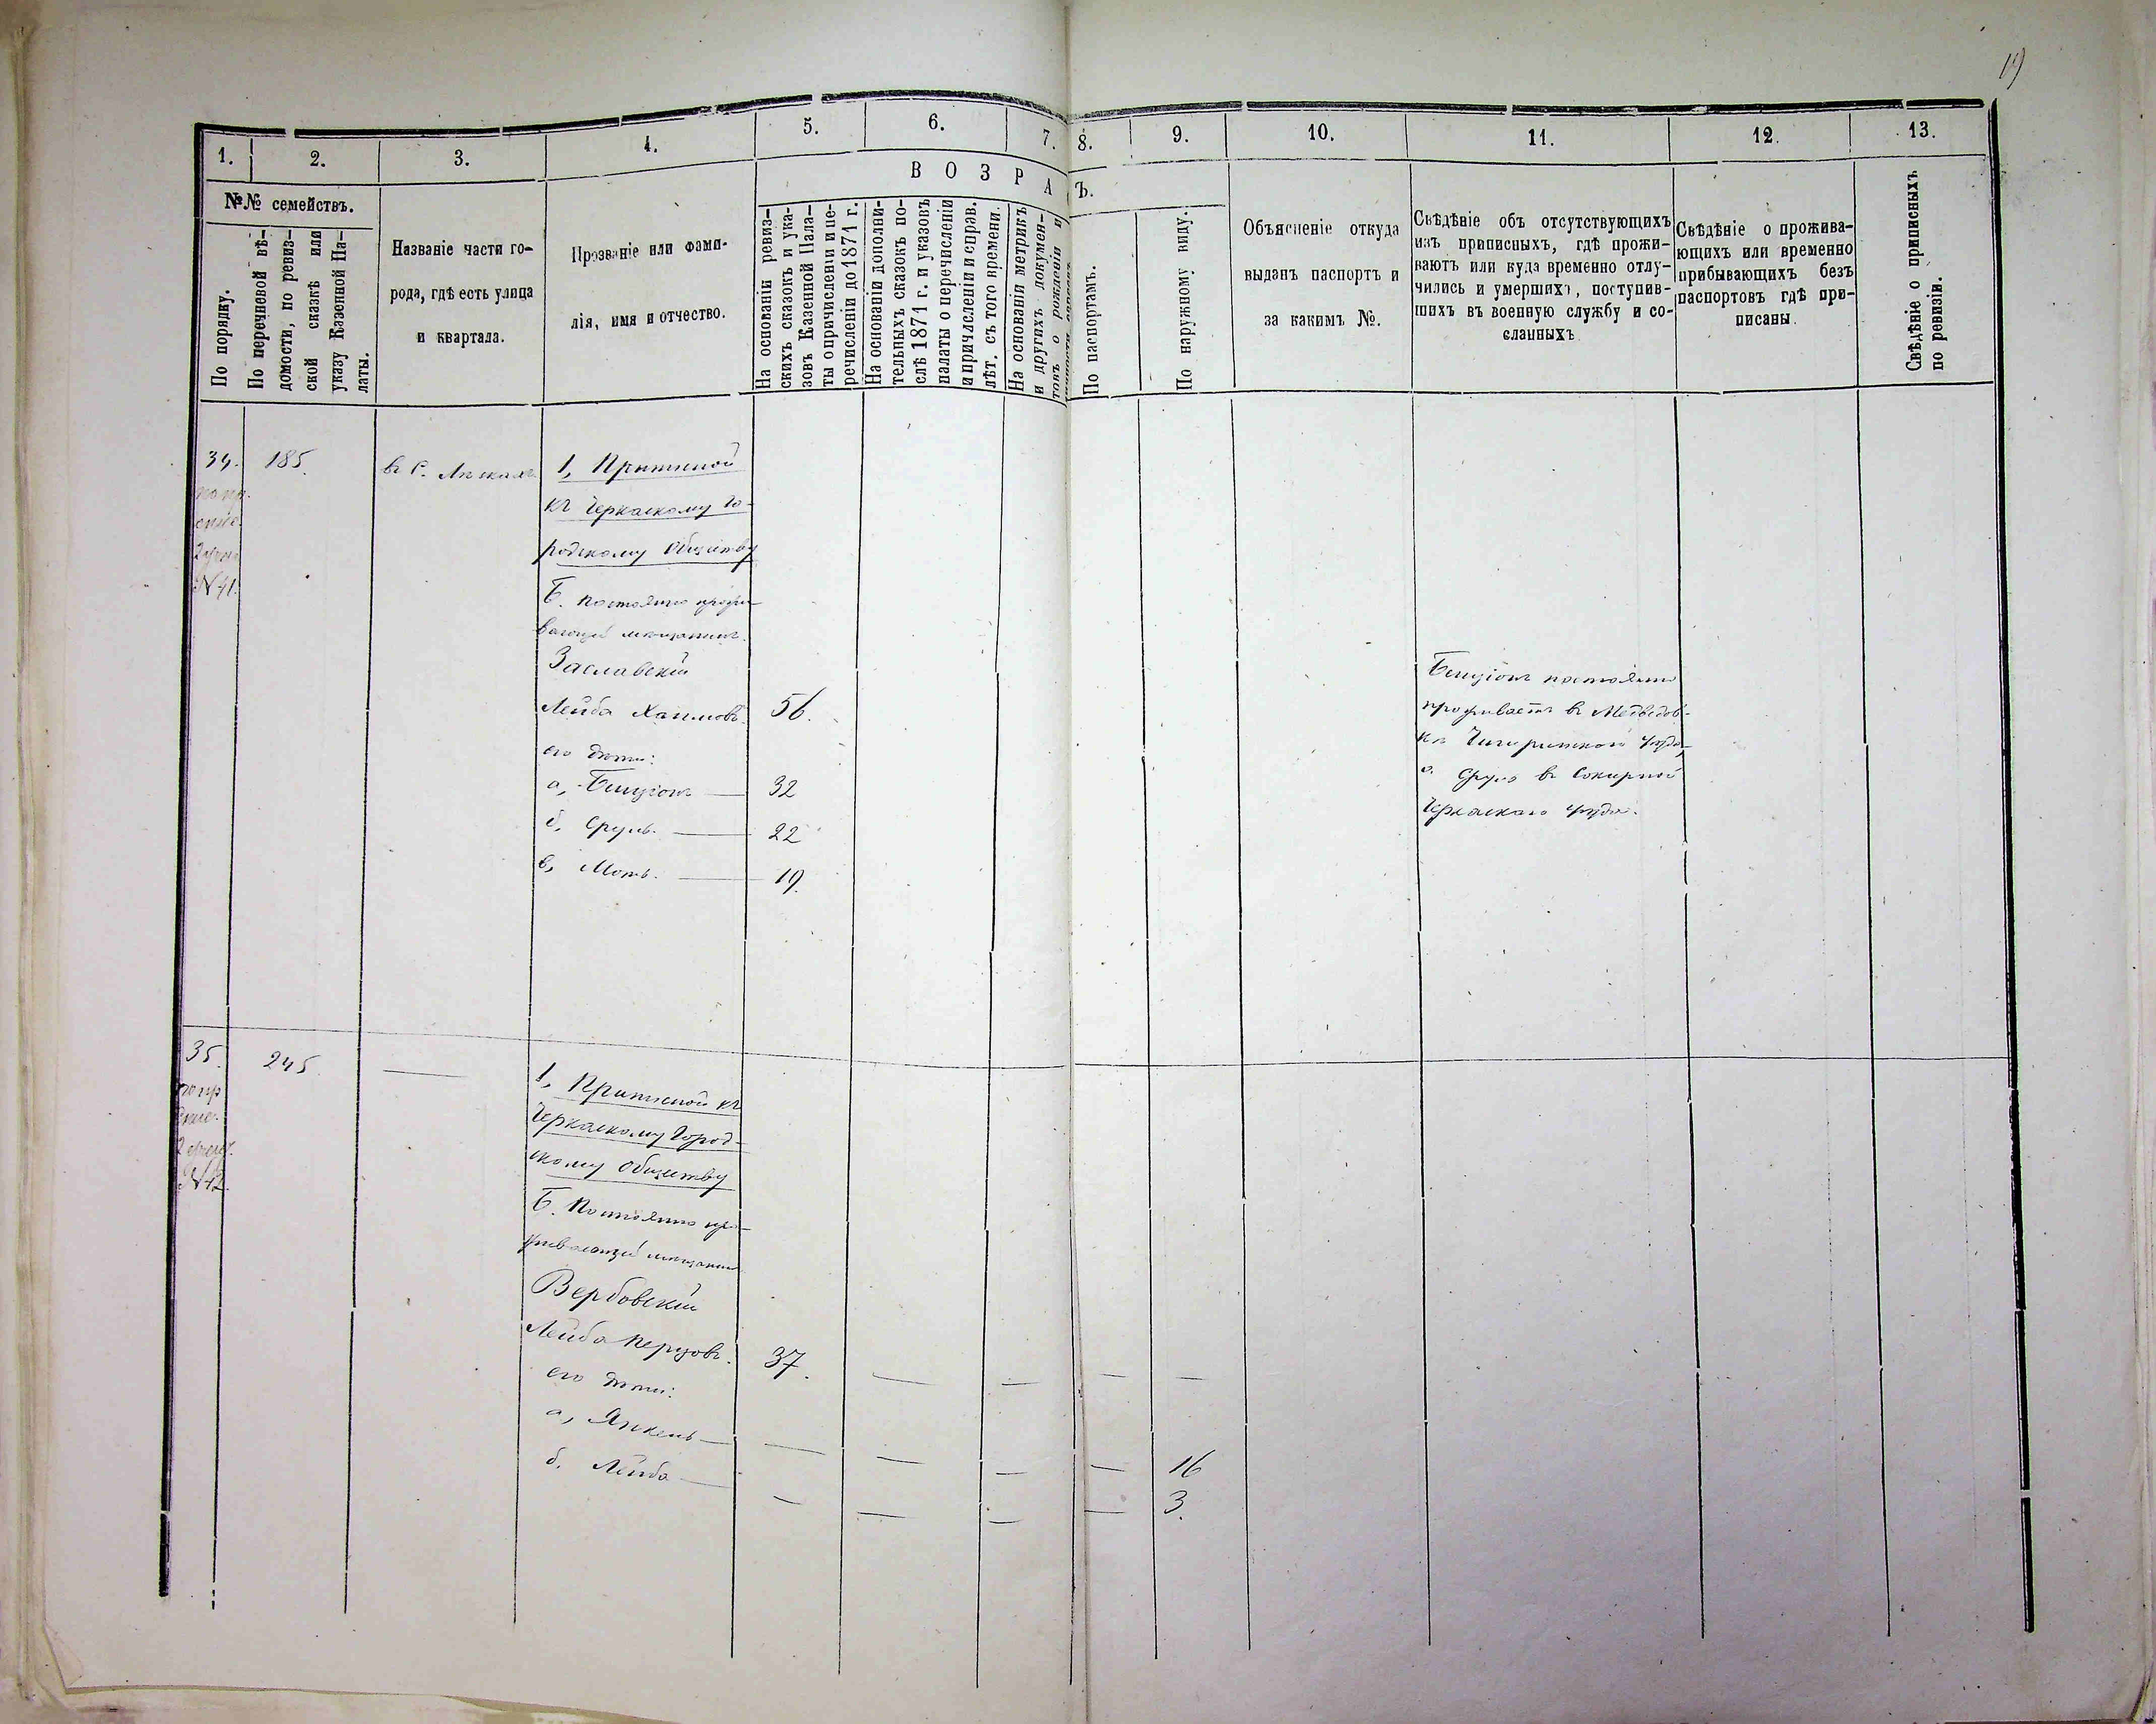 19
1.
2.
3.
4.
5.
6.
7.
8.
9.
10.
11.
12.
13.
№№ семействъ.
По порядку.
По перечневой вѣ-
домости, по ревиз-
ской сказкѣ или
указу Казенной Па-
латы.
Названіе части го-
рода, гдѣ есть улица
и квартала.
Прозваніе или фами-
лія, имя и отчество.
В О З Р А
Ъ.
На основаніи ревиз-
скихъ сказокъ и ука-
зовъ Казенной Пала-
ты о причисленіи и пе-
речисленіи до 1871 г.
На основаніи дополни-
тельныхъ сказокъ по-
слѣ 1871 г. и указовъ
палаты о перечисленіи
и причисленіи и справ.
лѣт. съ того времени.
На основаніи метрикъ
и другихъ докумен-
товъ о рожденіи и
По паспортамъ.
По наружному виду.
Объясненіе откуда
выданъ паспортъ и
за какимъ №.
Свѣдѣніе объ отсутствующихъ
изъ приписныхъ, гдѣ прожи-
ваютъ или куда временно отлу-
чились и умершихъ, поступив-
шихъ въ военную службу и со-
сланныхъ
Свѣдѣніе о прожива-
ющихъ или временно
прибывающихъ безъ
паспортовъ гдѣ при-
писаны.
Свѣдѣніе о приписныхъ
по ревизіи.
34.
N 41.
185.
въ с.
1, Приписной
къ Черкаскому Го-
родскому Обществу
Б. постоянно прожи-
вающій мещанинъ.
Заславскій
Лейба Хаимовъ 56.
его дѣти:
а, Бенціонъ — 32
б, Сруль. — 22
в, Моть. — 19.
Бенціонъ постоянно
проживаетъ въ Медведов-
кѣ Чигиринскаго уѣзда,
а Сруль въ Сокирной
Черкаскаго уѣзда.
35.
N 42.
245
—
1, Приписной къ
Черкаскому Город-
скому Обществу
Б. Постоянно про-
живающій мещанинъ
Вербовскій
Лейба Перцовъ. 37. — — — —
его дѣти:
а, Янкель — — — — — 16
б. Лейба — — — — — 3.